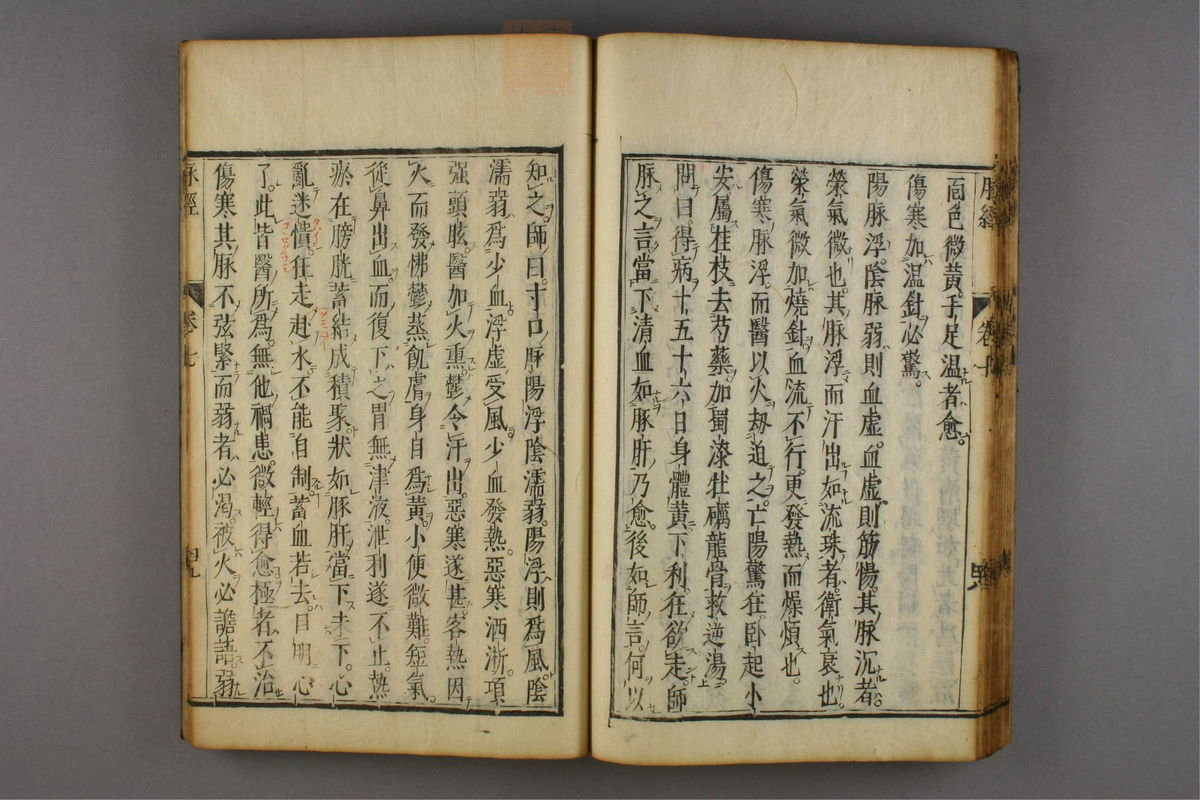 面色微黃手足温者愈
傷寒加温針必驚
陽脉浮陰脉弱則血虛血虛則筋惕其脉沉者
榮氣微也其脉浮而汗出如流珠者衛氣衰也
榮氣微加燒針血流不行更發熱而燥煩也
傷寒脉浮而醫以火劫迫之亡陽驚狂臥起不
安屬桂枝去芍藥加蜀漆牡礪龍骨救逆湯
問曰得病十五十六日身體黃下利狂欲走師
脉之言當下清血如豚肝乃愈後如師言何以
脉經
卷七
知之師曰寸口脉陽浮陰濡弱陽浮則爲風陰
濡弱爲少血浮虛受風少血發熱惡寒洒淅項
强頭眩醫加火熏鬱令汗出惡寒遂甚客熱因
火而發怫鬱蒸飢膚身自爲黃小便微難短氣
從鼻出血而復下之胃無津液泄利遂不止熱
瘀在膀胱蓄結成積聚狀如豚肝當下未下心
亂迷憒狂走赴水不能自制蓄血若去目明心
了此皆醫所爲無他禍患微輕得愈極者不治
傷寒其脉不弦緊而弱者必渴被火必譫語弱
脉經
卷七